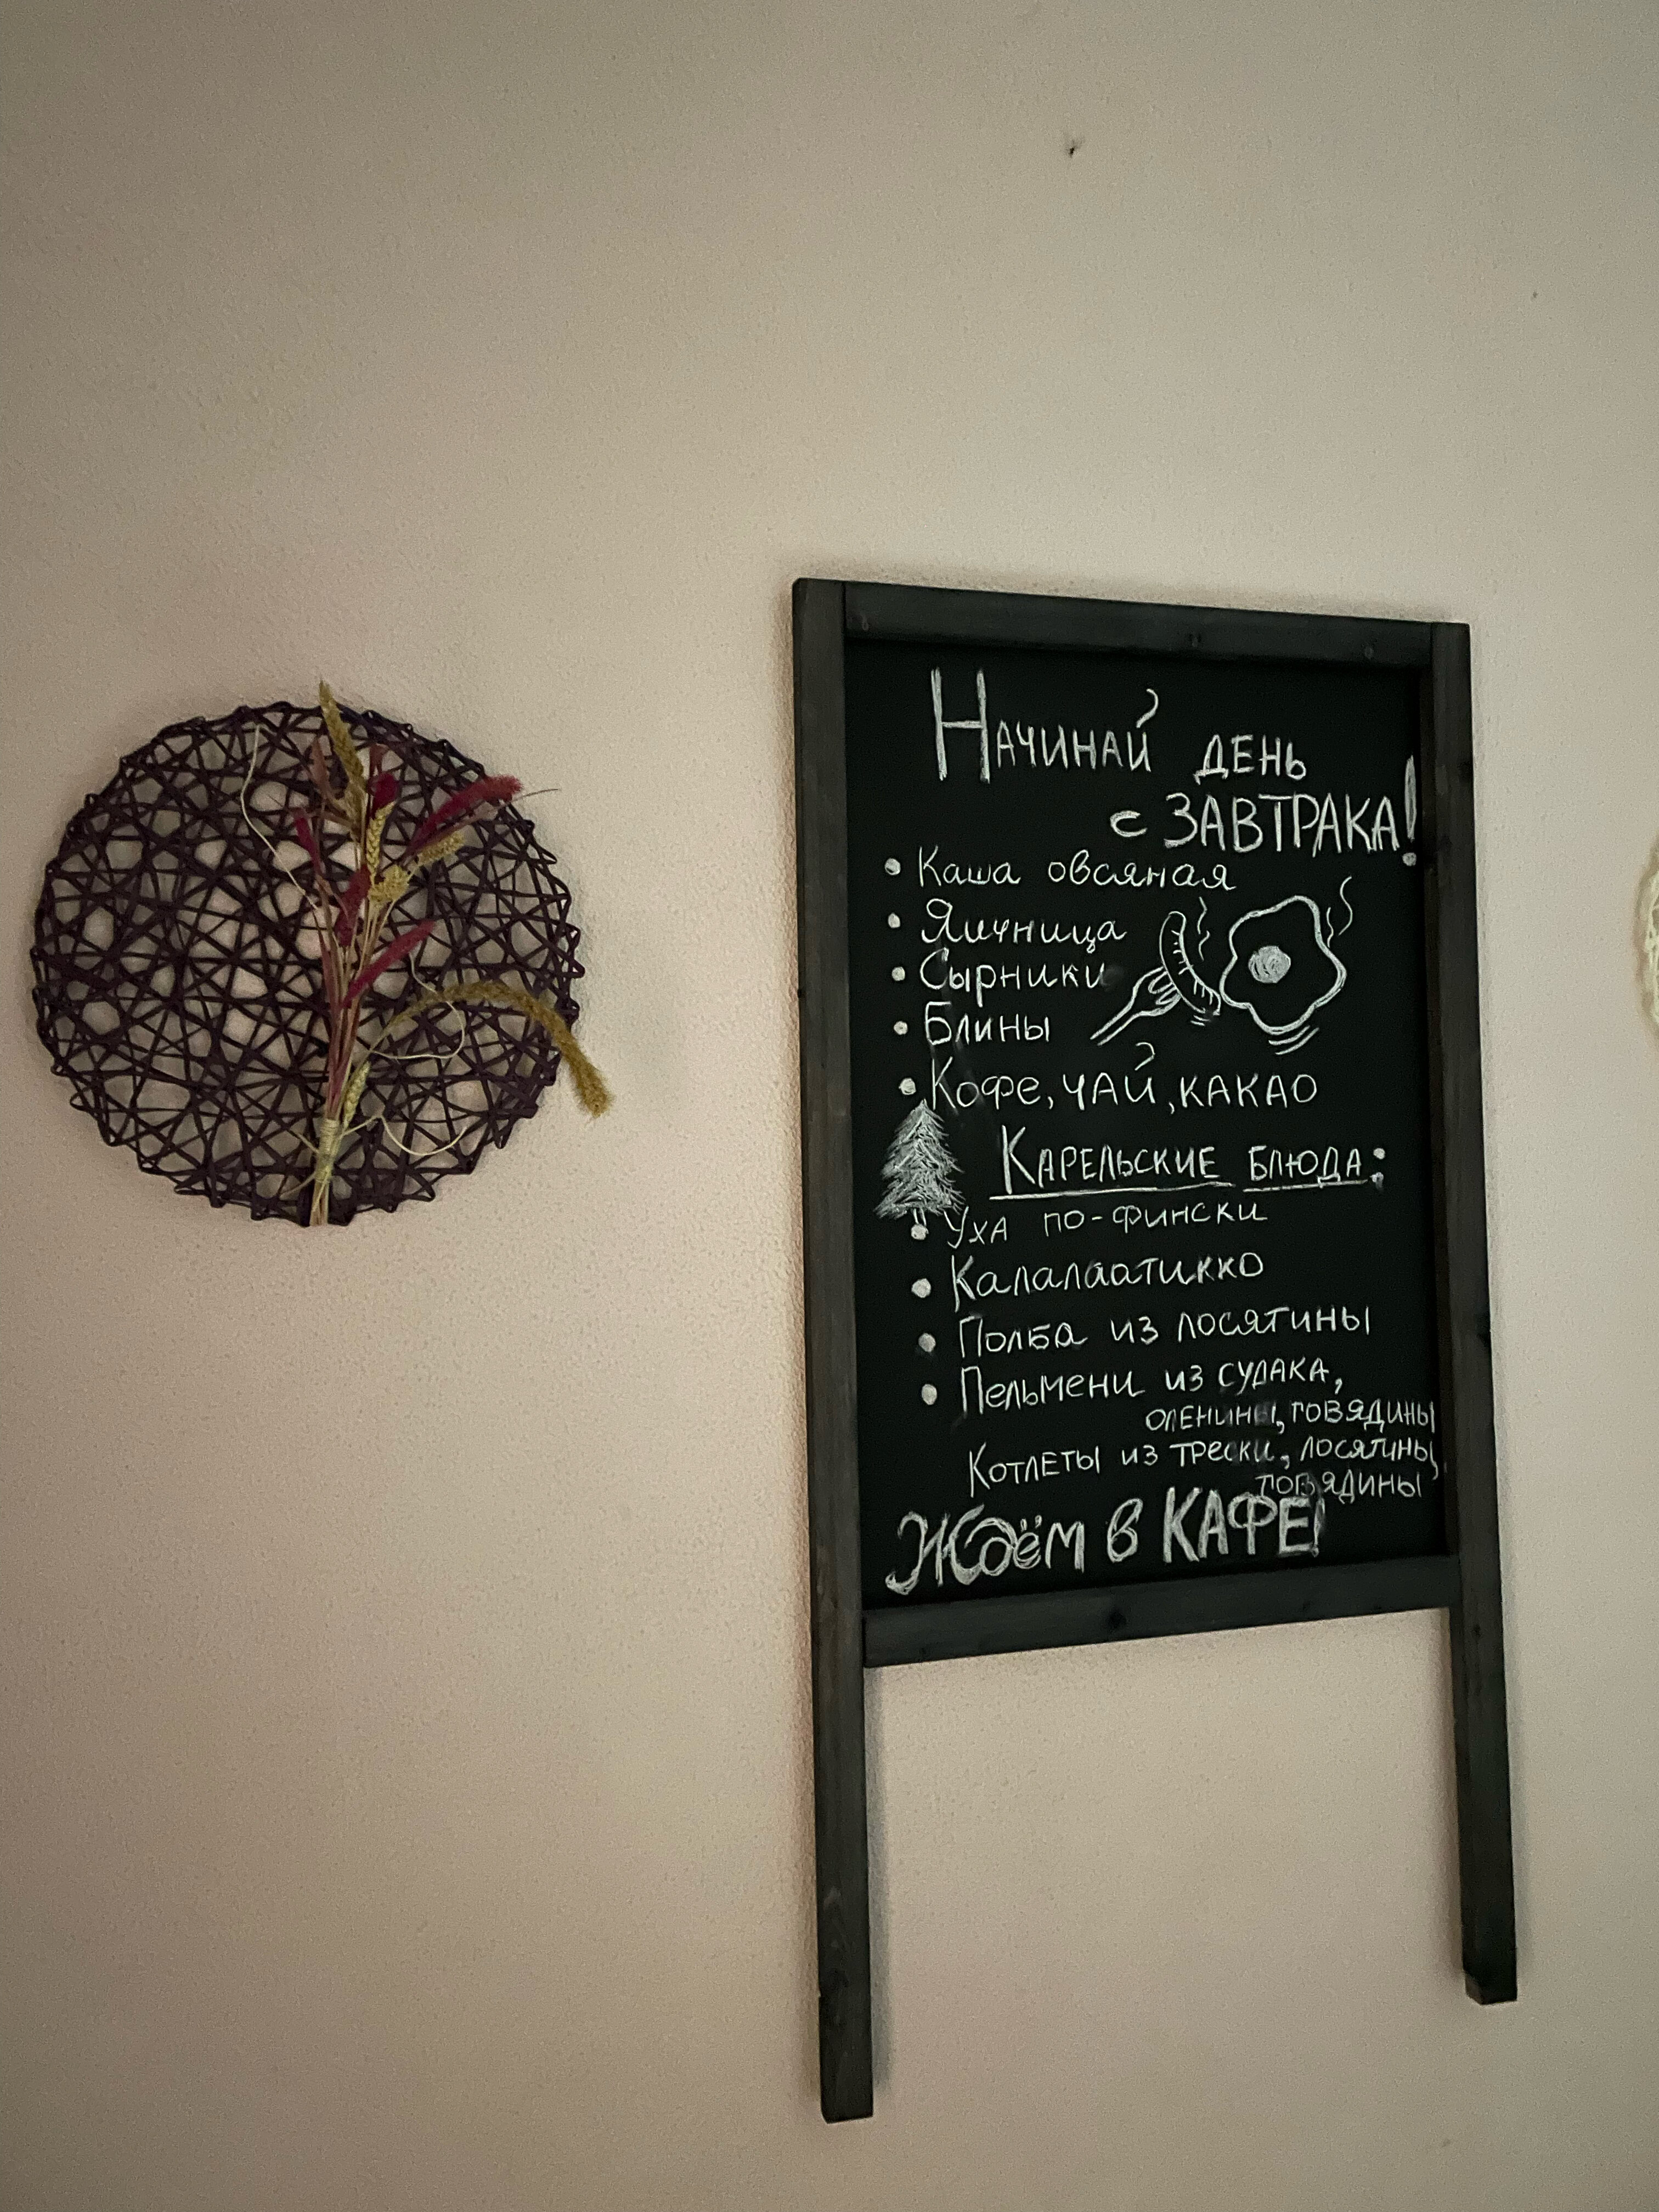 Начинай день
с ЗАВТРАКА!
• Каша овсяная
• Яичница
• Сырники
• Блины
• Кофе, чай, какао
Карельские блюда:
• Уха по-фински
• Калалаатикко
• Полба из лосятины
• Пельмени из судака,
оленины, говядины
Котлеты из трески, лосятины,
говядины
Ждём в КАФЕ!